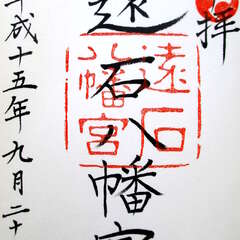 拝
遠石八幡宮
平成十五年九月二十
遠石
八幡宮